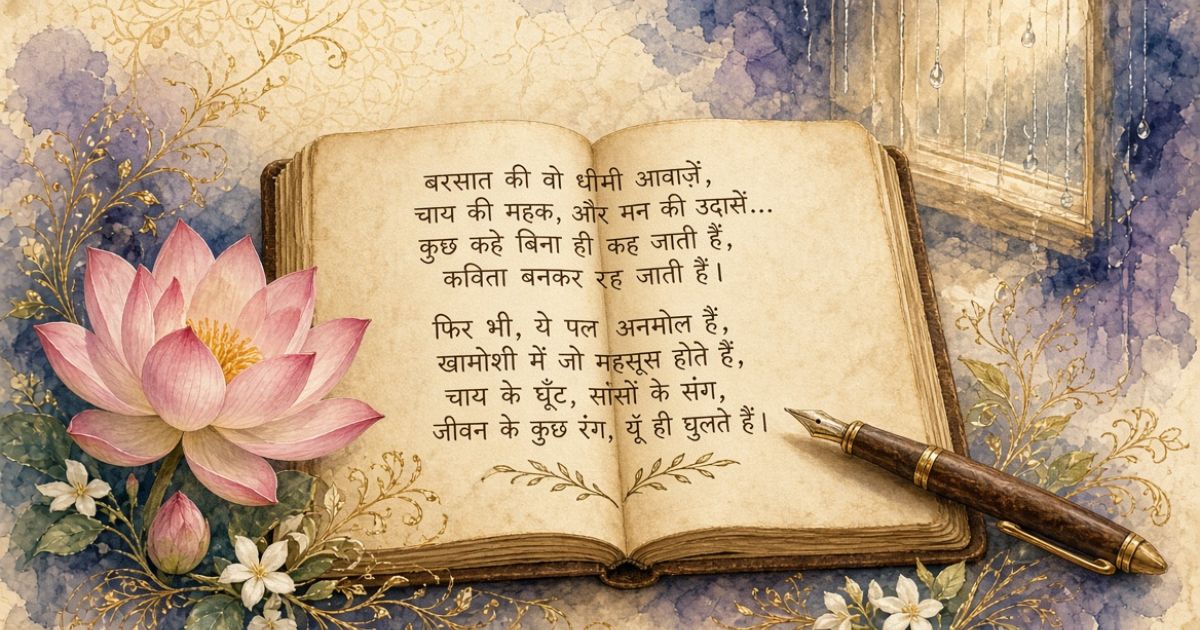 बरसात की वो धीमी आवाज़ें,
चाय की महक, और मन की उदासें...
कुछ कहे बिना ही कह जाती हैं,
कविता बनकर रह जाती हैं।
फिर भी, ये पल अनमोल हैं,
खामोशी में जो महसूस होते हैं,
चाय के घूँट, सांसों के संग,
जीवन के कुछ रंग, यूँ ही घुलते हैं।